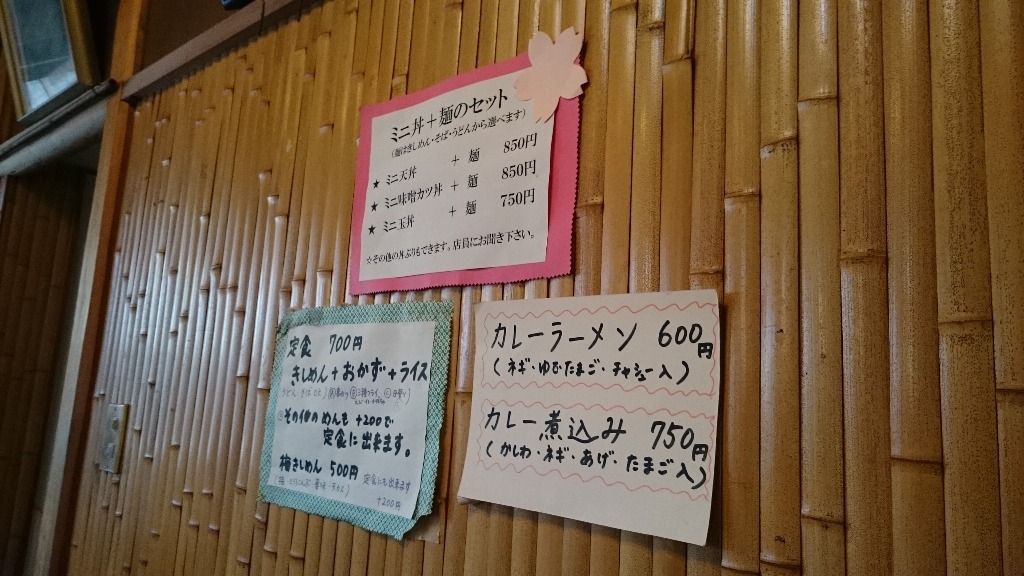 ミニ丼＋麺のセット
(麺はきしめん・そば・うどんから選べます)
★ ミニ天丼 ＋ 麺 850円
★ ミニ味噌カツ丼 ＋ 麺 850円
★ ミニ玉丼 ＋ 麺 750円
☆その他の丼ぶりもできます。店員にお聞き下さい。
定食 700円
きしめん+おかず+ライス
その他のめんも +200で
定食に出来ます。
梅きしめん 500円 定食にも出来ます
+200円
カレーラーメン 600円
(ネギ・ゆでたまご・チャシュー入)
カレー煮込み 750円
(かしわ・ネギ・あげ・たまご入)